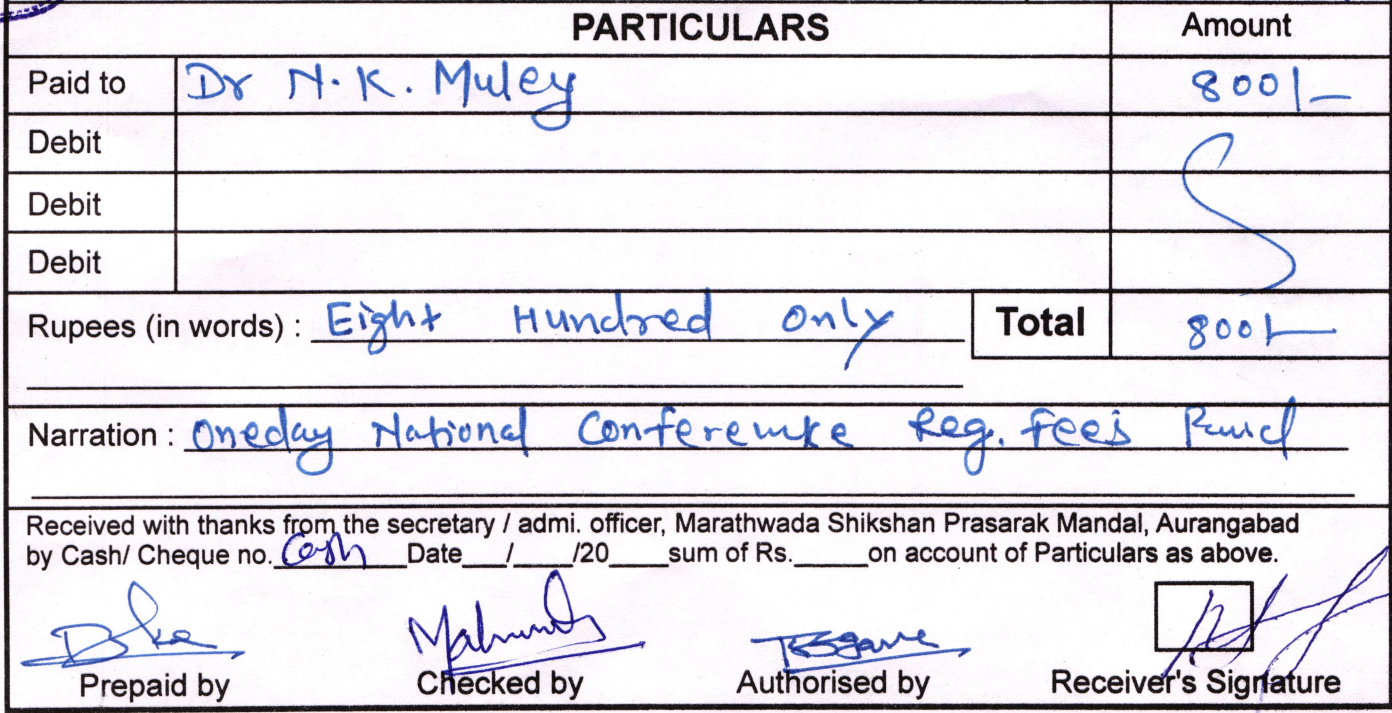 PARTICULARS Amount
Paid to Dr N. K. Muley 800/-
Debit
Debit
Debit
Rupees (in words) : Eight Hundred only Total 800/-
Narration : Oneday National Conferemke Reg. Fees
Received with thanks from the secretary / admi. officer, Marathwada Shikshan Prasarak Mandal, Aurangabad
by Cash/ Cheque no. Cash Date___/____/20____sum of Rs._____on account of Particulars as above.
Prepaid by Checked by Authorised by Receiver's Signature